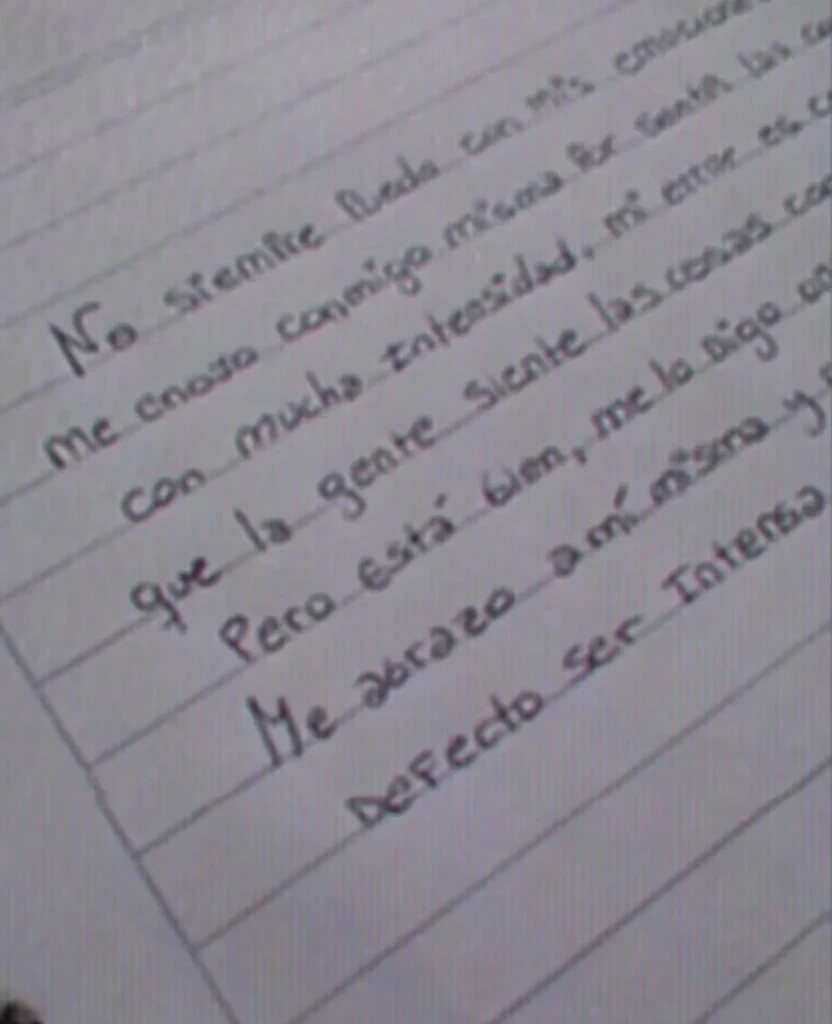 No siempre Puedo con mis emocione
me enojo conmigo misma Por sentir las
con mucha Intensidad, mi error es
que la gente siente las cosas
Pero Está bien, me lo Digo
Me abrazo a mí misma y
Defecto ser Intensa